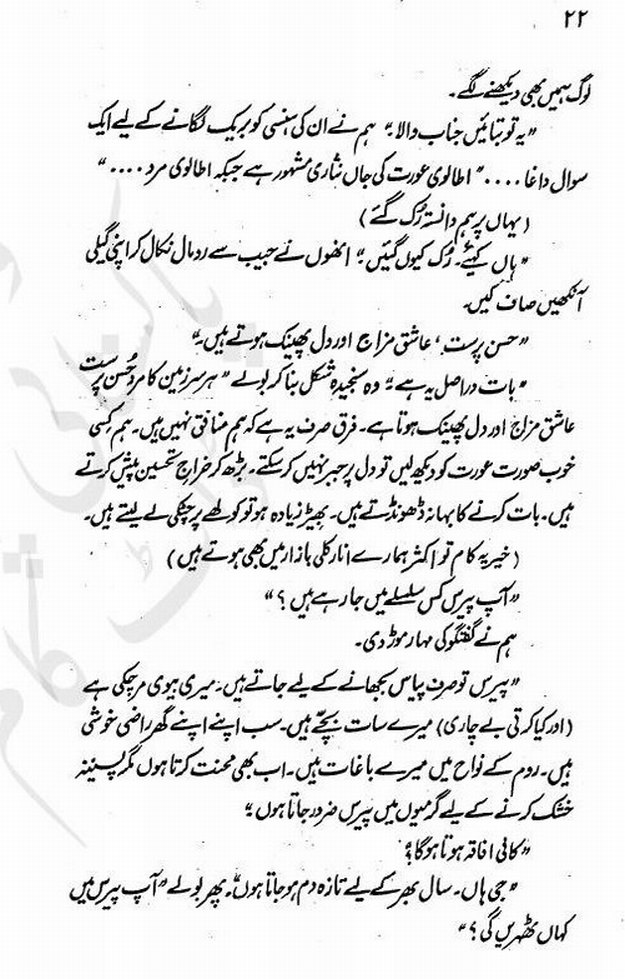 ۲۲
لوگ ہمیں بھی دیکھنے لگے۔
"یہ تو بتائیں جناب والا۔" ہم نے ان کی ہنسی کو بریک لگانے کے لیے ایک
سوال داغا ...." اطالوی عورت کی جاں نثاری مشہور ہے جبکہ اطالوی مرد ...."
(یہاں پر ہم دانستہ رُک گئے)
"ہاں کہیئے۔ رُک کیوں گئیں۔" انھوں نے جیب سے رومال نکال کر اپنی گیلی
آنکھیں صاف کیں۔
"حسن پرست، عاشق مزاج اور دل پھینک ہوتے ہیں۔"
"بات دراصل یہ ہے۔" وہ سنجیدہ شکل بنا کر بولے "ہر سرزمین کا مرد حُسن پرست
عاشق مزاج اور دل پھینک ہوتا ہے۔ فرق صرف یہ ہے کہ ہم منافق نہیں ہیں۔ ہم کسِی
خوب صورت عورت کو دیکھ لیں تو دل پر جبر نہیں کر سکتے۔ بڑھ کر خراجِ تحسین پیش کرتے
ہیں۔ بات کرنے کا بہانہ ڈھونڈتے ہیں۔ بھیڑ زیادہ ہو تو کولھے پر چٹکی لے لیتے ہیں۔
(خیر یہ کام تو اکثر ہمارے انار کلی بازار میں بھی ہوتے ہیں)
"آپ پیرس کس سلسلے میں جا رہے ہیں؟"
ہم نے گفتگو کی مہار موڑ دی۔
"پیرس تو صرف پیاس بجھانے کے لیے جاتے ہیں۔ میری بیوی مر چکی ہے
(اور کیا کرتی بے چاری) میرے سات بچّے ہیں۔ سب اپنے اپنے گھر راضی خوشی
ہیں۔ روم کے نواح میں میرے باغات ہیں۔ اب بھی محنت کرتا ہوں مگر پسینہ
خشک کرنے کے لیے گرمیوں میں پیرس ضرور جاتا ہوں۔"
"کافی افاقہ ہوتا ہوگا؟"
"جی ہاں۔ سال بھر کے لیے تازہ دم ہو جاتا ہوں"۔ پھر بولے "آپ پیرس میں
کہاں ٹھہریں گی؟"